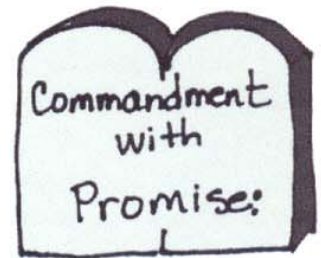 Commandment
with
Promise: